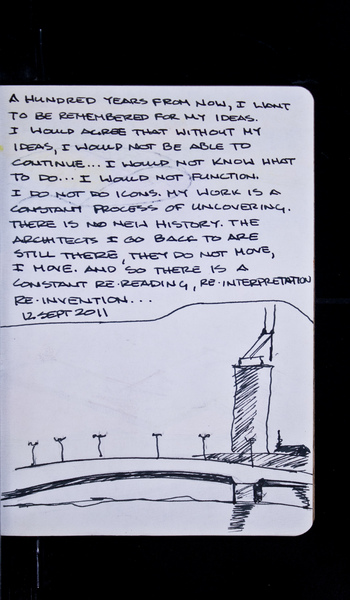 A HUNDRED YEARS FROM NOW, I WANT
TO BE REMEMBERED FOR MY IDEAS.
I WOULD AGREE THAT WITHOUT MY
IDEAS, I WOULD NOT BE ABLE TO
CONTINUE... I WOULD NOT KNOW WHAT
TO DO... I WOULD NOT FUNCTION.
I DO NOT DO ICONS. MY WORK IS A
CONSTANT PROCESS OF UNCOVERING.
THERE IS NO NEW HISTORY. THE
ARCHITECTS I GO BACK TO ARE
STILL THERE, THEY DO NOT MOVE,
I MOVE. AND SO THERE IS A
CONSTANT RE·READING, RE·INTERPRETATION
RE·INVENTION...
12 SEPT 2011